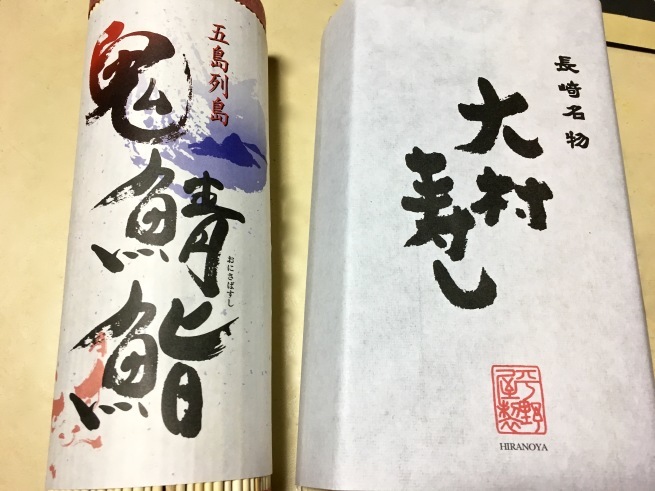 五島列島
鬼鯖鮨
おにさばすし
長崎名物
大村
寿し
平野屋製
HIRANOYA